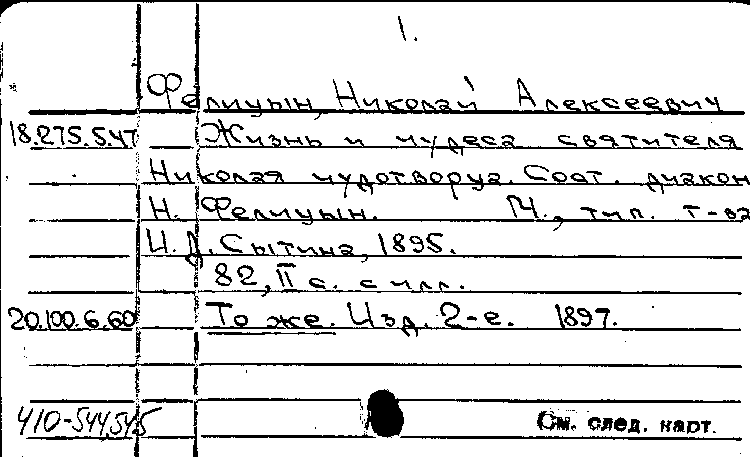 1.
Фелицын, Николай Алексеевич
18.275.5.47 Жизнь и чудеса святителя
Николая чудотворца. Сост. диакон
Н. Фелицын. М., тип. т-ва
И. Д. Сытина, 1895.
82, II с. с илл.
20.100.6.60 То же. Изд. 2-е. 1897.
410-544,545
См. след. карт.